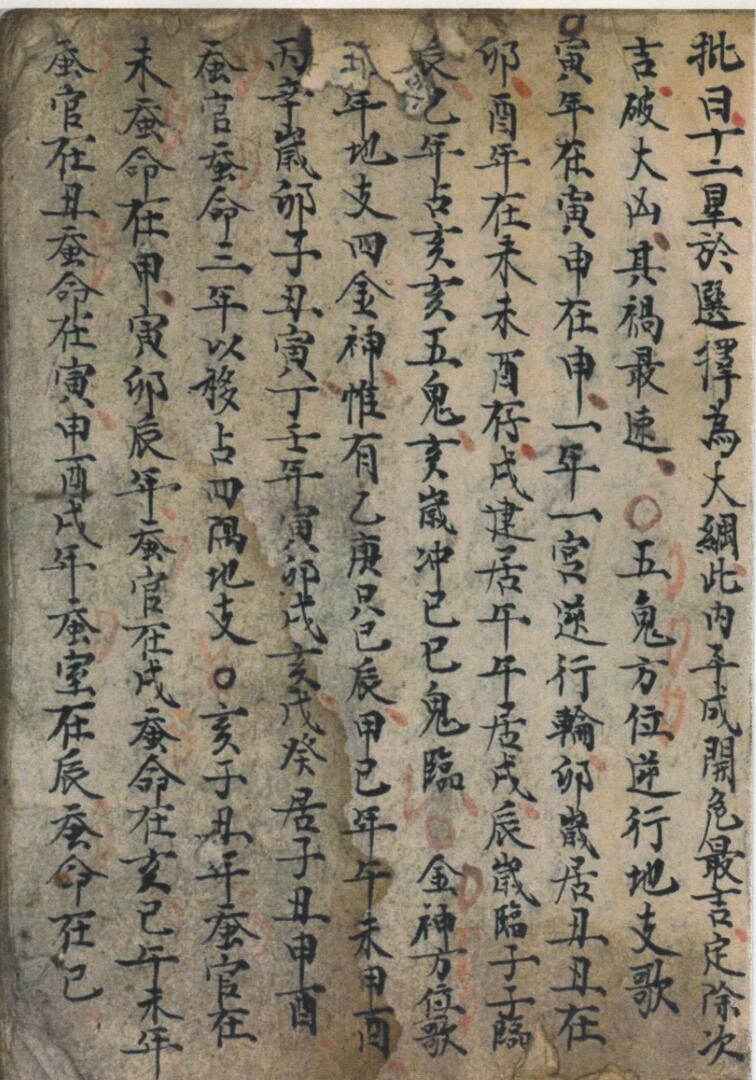 批曰十二星於選擇為大綱此内平成開危最吉定除次
吉破大凶其禍最速○五鬼方位逆行地支歌
寅年在寅申在申一年一宮逆行輪卯歲居丑丑在
卯酉年在未未酉存戌建居午午居戌辰歲臨子子臨
辰乙年占亥亥五鬼亥歲冲巳巳鬼臨 金神方位歌
年地支四金神惟有乙庚只巳辰甲己年午未申酉
丙辛歲卯子丑寅丁壬年寅卯戌亥戊癸居子丑申酉
蚕官蚕命三年以移占四隅地支○亥子丑年蚕官在
未蚕命在申寅卯辰年蚕官在戌蚕命在亥巳午未年
蚕官在丑蚕命在寅申酉戌年蚕室在辰蚕命在巳